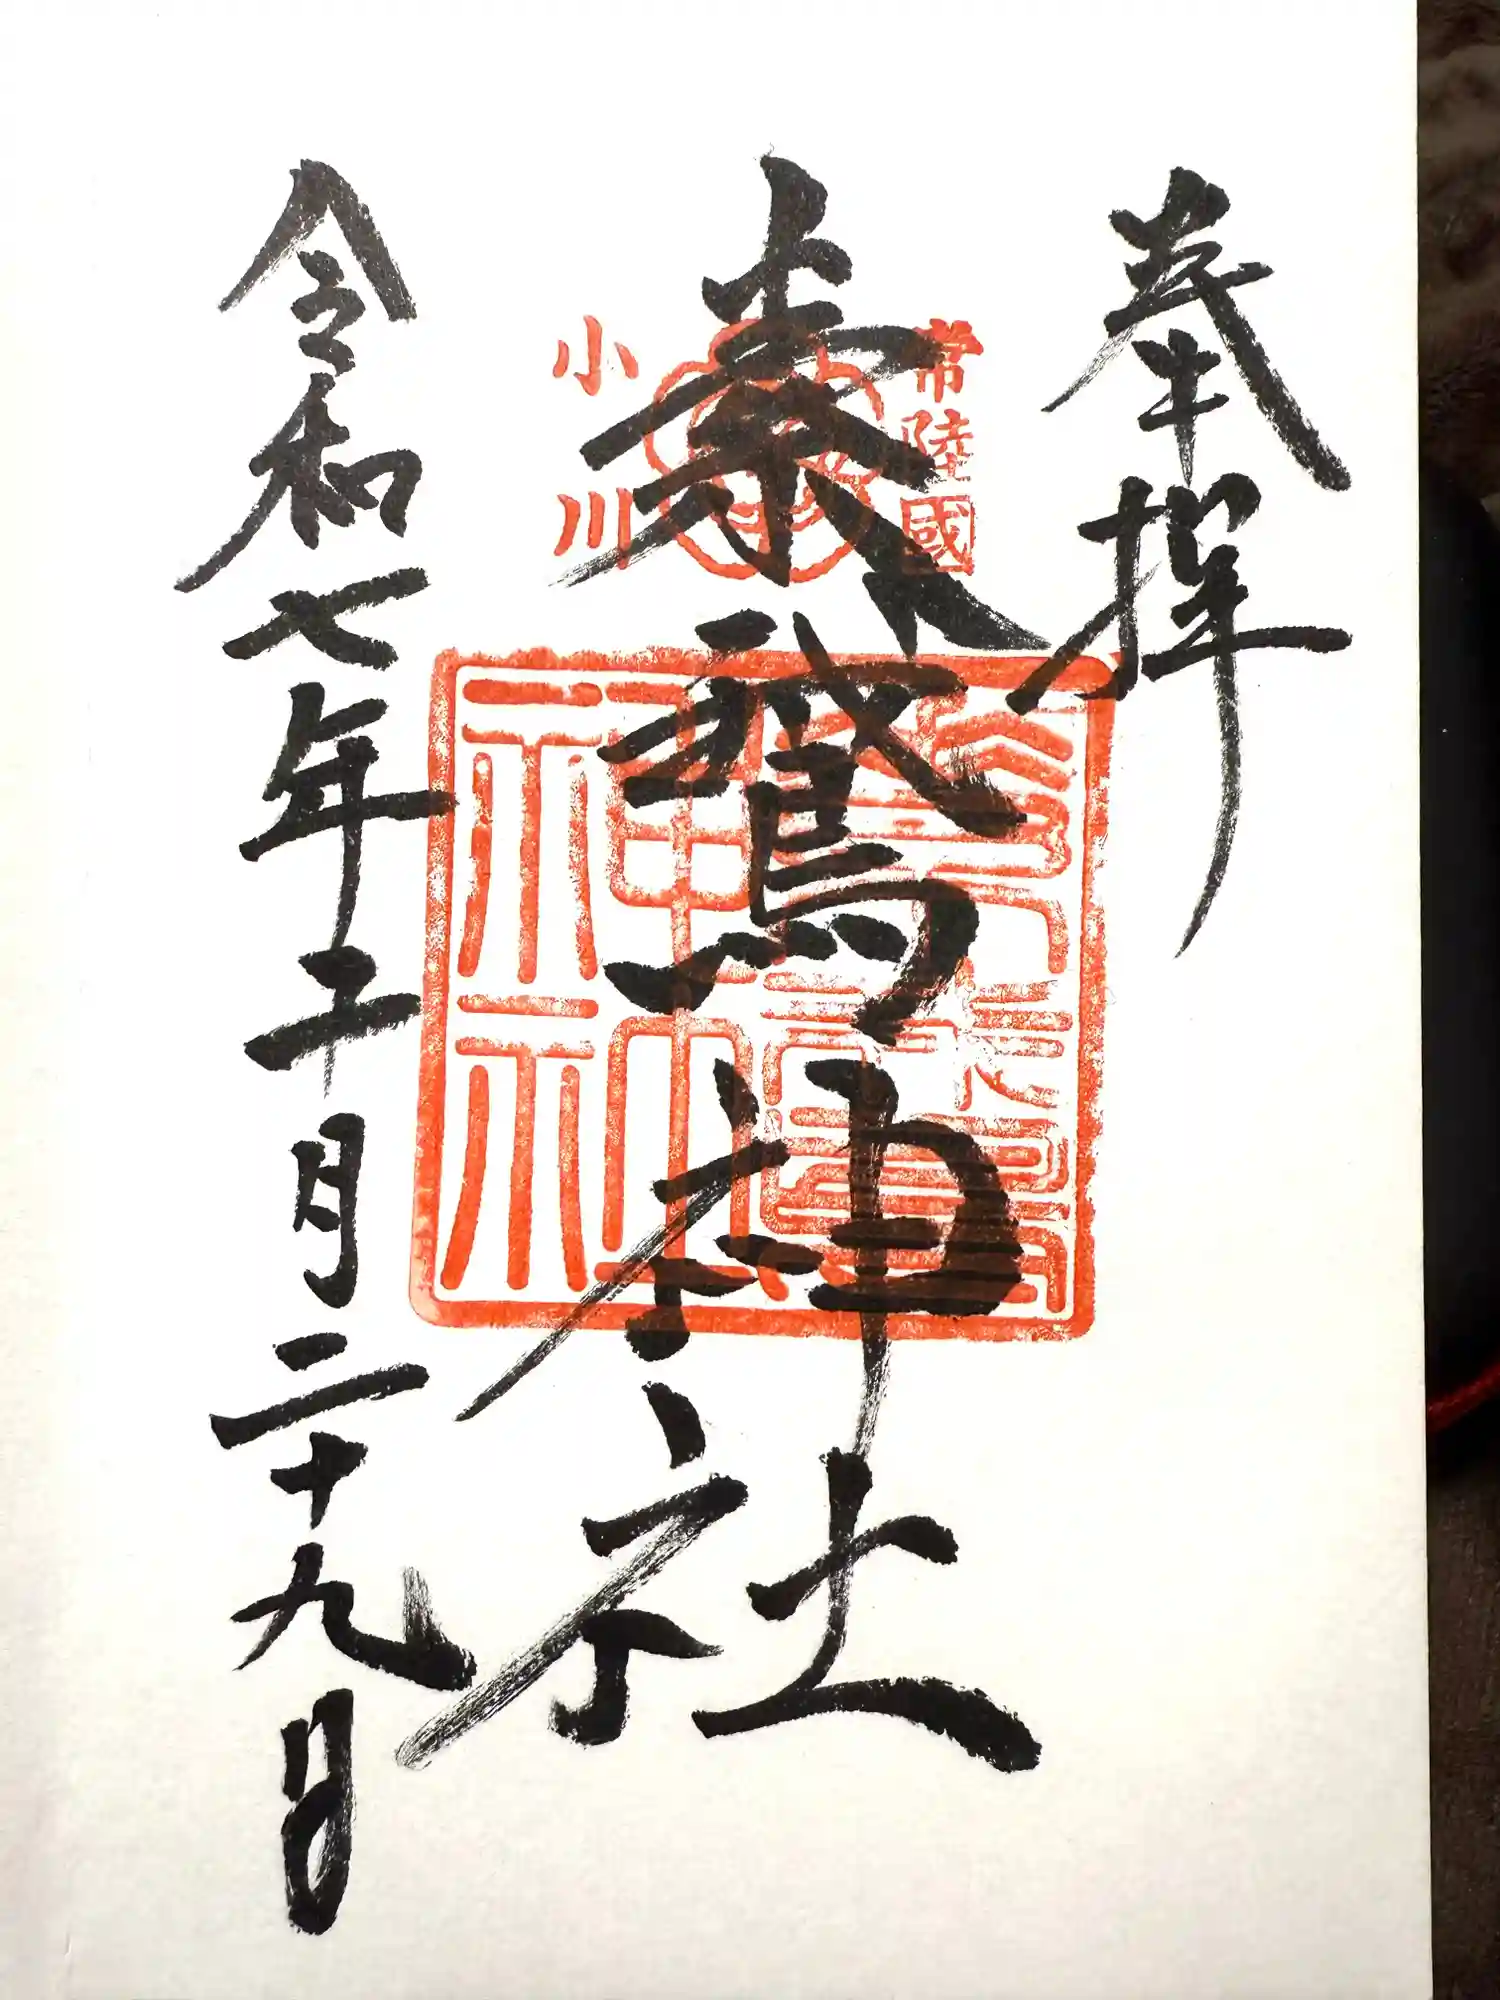 奉拝
常陸國
素鵞神社
小川
素鵞
神社
令和七年十一月二十九日